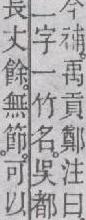 今補。禹貢鄭注曰
一字一竹名。吳都
長丈餘。無節。可以